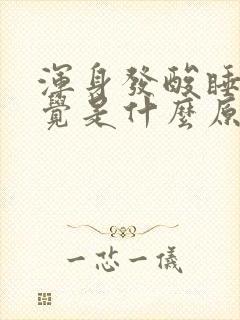 渾身發酸睡
覺是什麼原
一芯一儀